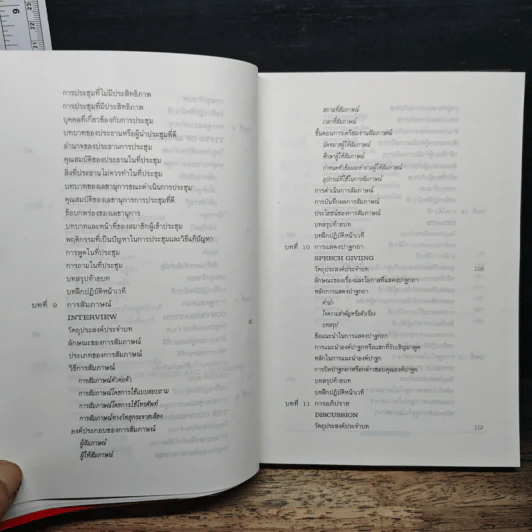 การประชุมที่ไม่มีประสิทธิภาพ
การประชุมที่มีประสิทธิภาพ
บุคคลที่เกี่ยวข้องกับการประชุม
บทบาทของประธานหรือผู้นำประชุมที่ดี
อำนาจของประธานการประชุม
คุณสมบัติของประธานในที่ประชุม
สิ่งที่ประธานไม่ควรทำในที่ประชุม
บทบาทของเลขานุการขณะดำเนินการประชุม
คุณสมบัติของเลขานุการการประชุมที่ดี
ข้อบกพร่องของเลขานุการ
บทบาทและหน้าที่ของสมาชิกผู้เข้าประชุม
พฤติกรรมที่เป็นปัญหาในการประชุมและวิธีแก้ปัญหา
การพูดในที่ประชุม
การถามในที่ประชุม
บทสรุปท้ายบท
บทฝึกปฏิบัติหน้าเวที
บทที่ 9 การสัมภาษณ์
INTERVIEW
วัตถุประสงค์ประจำบท
ลักษณะของการสัมภาษณ์
ประเภทของการสัมภาษณ์
วิธีการสัมภาษณ์
การสัมภาษณ์ตัวต่อตัว
การสัมภาษณ์โดยการใช้แบบสอบถาม
การสัมภาษณ์โดยการใช้โทรศัพท์
การสัมภาษณ์ทางวิทยุกระจายเสียง
องค์ประกอบของการสัมภาษณ์
ผู้สัมภาษณ์
ผู้ให้สัมภาษณ์
สถานที่สัมภาษณ์
เวลาที่สัมภาษณ์
ขั้นตอนการเตรียมงานสัมภาษณ์
นัดหมายผู้ให้สัมภาษณ์
ศึกษาผู้ให้สัมภาษณ์
กำหนดหัวข้อและคำถามผู้ให้สัมภาษณ์
อุปกรณ์ที่ใช้ในการสัมภาษณ์
การดำเนินการสัมภาษณ์
การบันทึกผลการสัมภาษณ์
ประโยชน์ของการสัมภาษณ์
บทสรุปท้ายบท
บทฝึกปฏิบัติหน้าเวที
บทที่ 10 การแสดงปาฐกถา
SPEECH GIVING
วัตถุประสงค์ประจำบท
ลักษณะของเรื่องและโอกาสที่แสดงปาฐกถา
หลักการแสดงปาฐกถา
คำนำ
ใจความสำคัญหรือตัวเรื่อง
บทสรุป
ข้อแนะนำในการแสดงปาฐกถา
การแนะนำองค์ปาฐกหรือแขกที่รับเชิญมาพูด
หลักในการแนะนำองค์ปาฐก
การปิดปาฐกถาหรือกล่าวขอบคุณองค์ปาฐก
บทสรุปท้ายบท
บทฝึกปฏิบัติหน้าเวที
บทที่ 11 การอภิปราย
DISCUSSION
วัตถุประสงค์ประจำบท 112